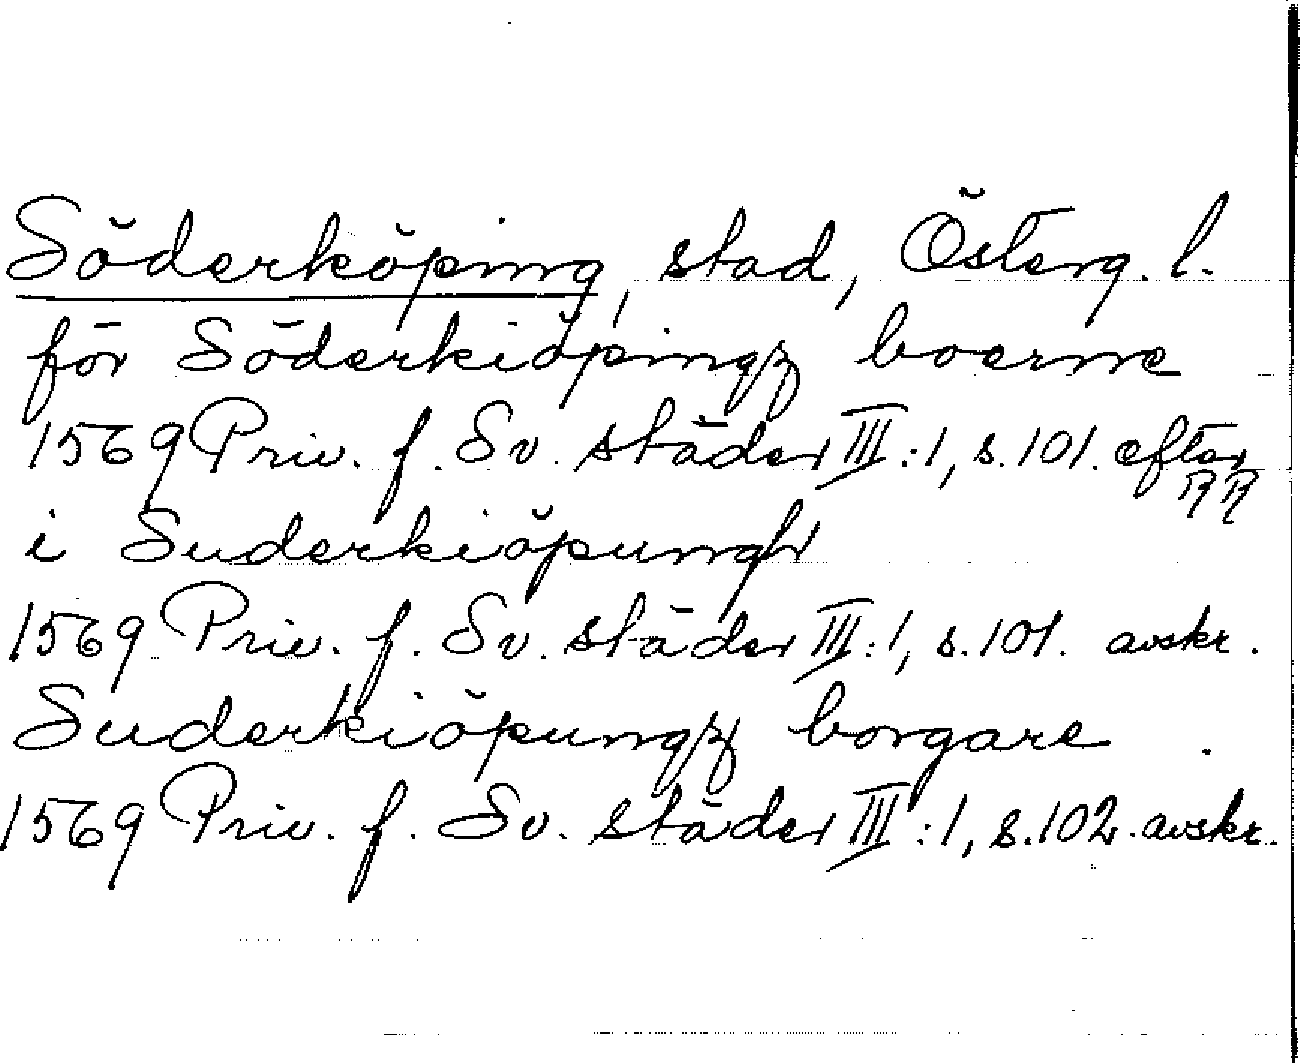 Söderköping, stad, Österg. l.
för Söderkiöpingz boerne
1569 Priv. f. Sv. städer III:1, s. 101. efter RR
i Suderkiöpungh
1569 Priv. f. Sv. städer III:1, s. 101. avskr.
Suderkiöpungz borgare
1569 Priv. f. Sv. städer III:1, s. 102. avskr.